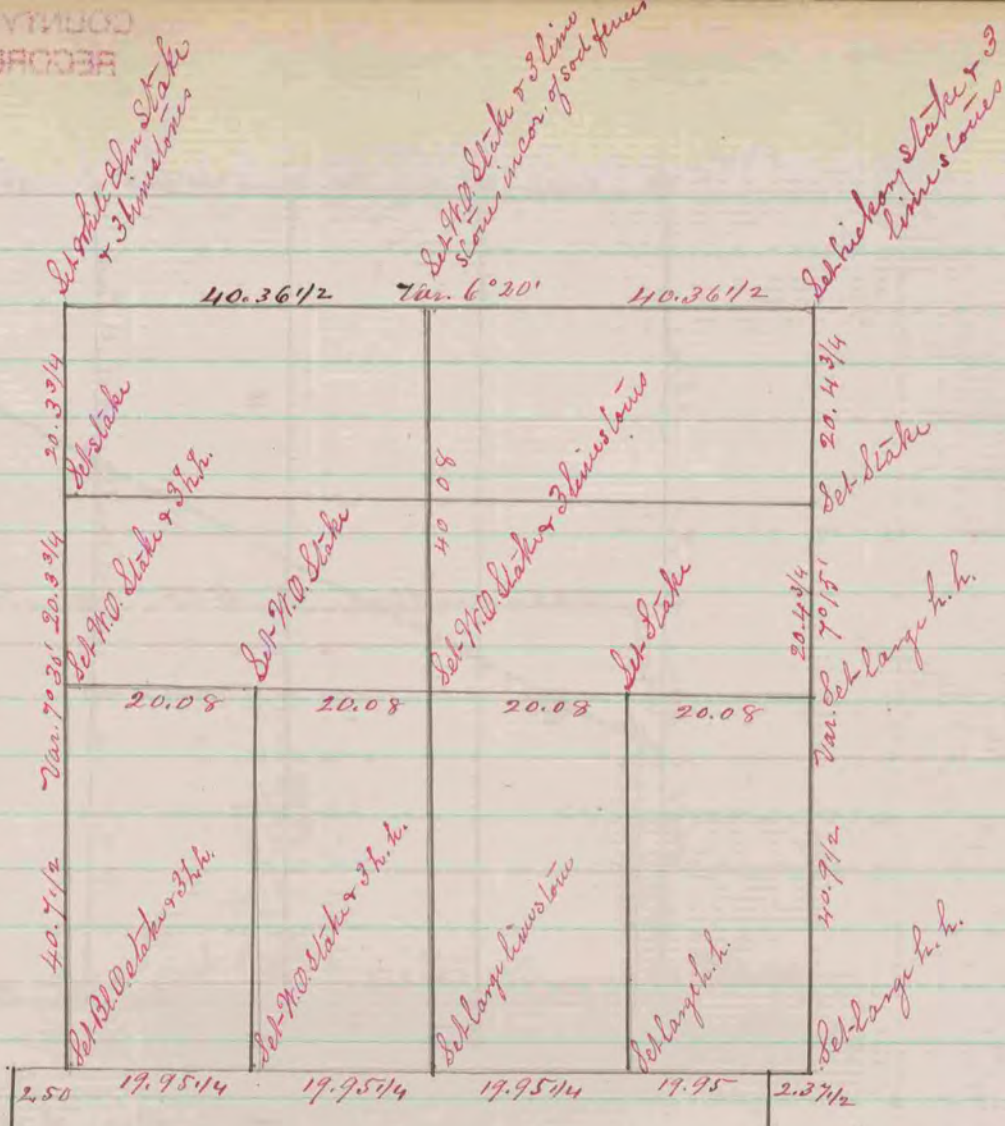 COUNTY
RECORD
Set White Elm Stake
& 3 limestones
Set W.O. Stake & 3 lime
stones in cor. of sod fence
Set hickory stake & 3
limestones
40.36 1/2
Var. 6° 20'
40.36 1/2
20.3 3/4
Set stake
40 08
20.4 3/4
Set Stake
20.3 3/4
Set W.O. Stake & 3 h.h.
Set W.O. Stake
Set W.O. Stake & 3 limestones
Set Stake
20.4 3/4
Var. 7° 15'
Set large h.h.
Var. 7° 30'
20.08
20.08
20.08
20.08
40.7 1/2
Set Bl.O. stake & 3 h.h.
Set W.O. Stake & 3 h.h.
Set large limestone
Set large h.h.
40.9 1/2
Set large h.h.
2.50
19.95 1/4
19.95 1/4
19.95 1/4
19.95
2.37 1/2